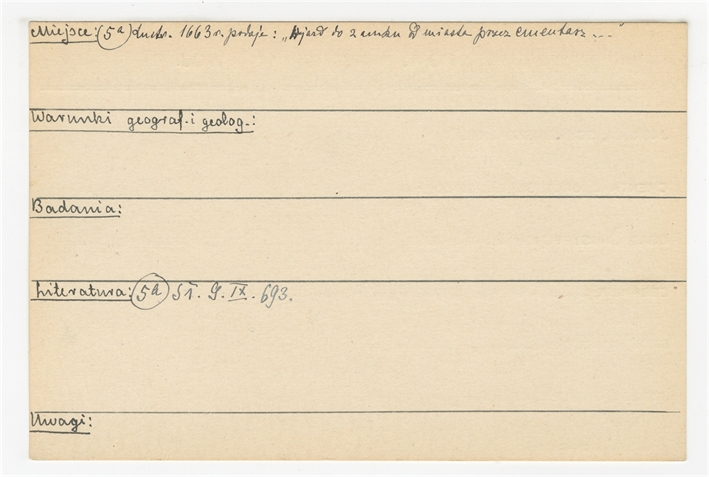 Miejsce: 5a Lustr. 1663 r. podaje: „Wjazd do zamku od miasta przez cmentarz ..."
Warunki geograf. i geolog.:
Badania:
Literatura: 5a Sł. G. IX. 693.
Uwagi: